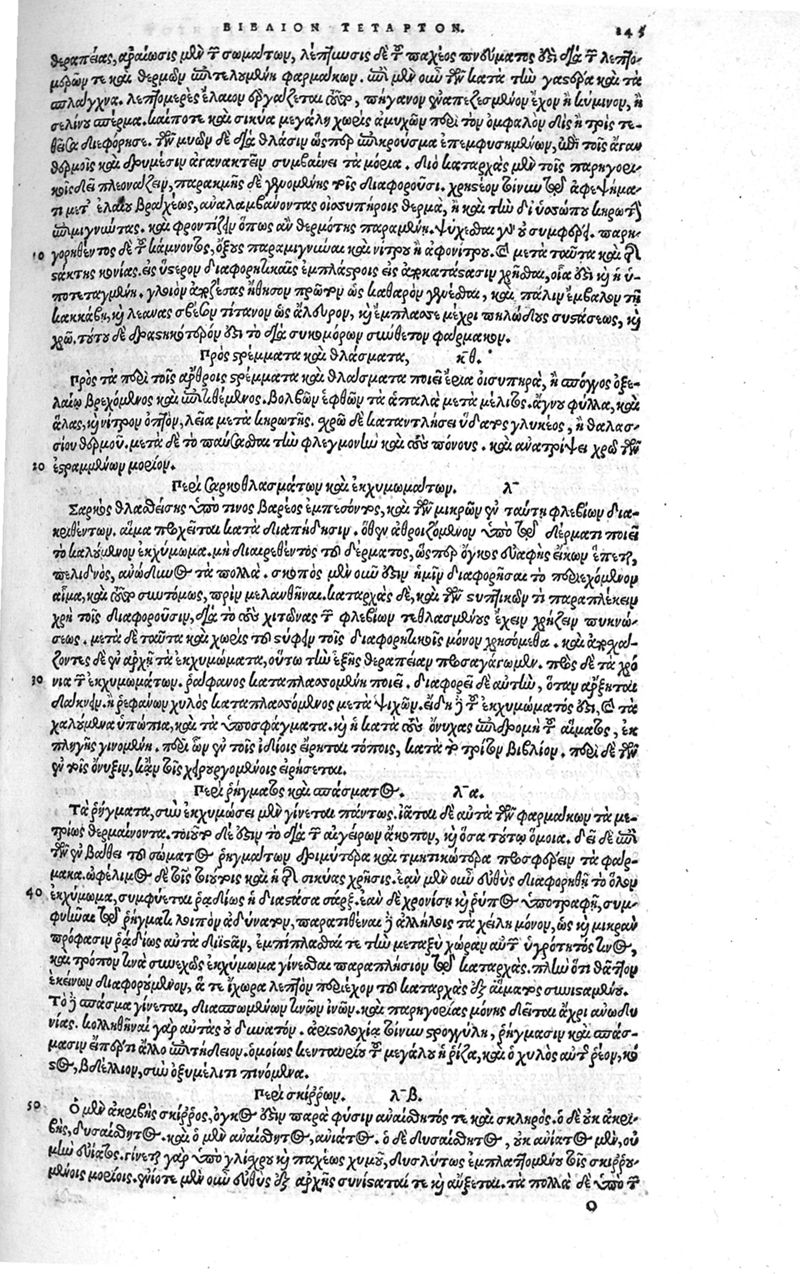 ΒΙΒΛΙΟΝ ΤΕΤΑΡΤΟΝ. 245
θεραπείας, ἀραίωσις μὲν τῶν σωμάτων, λέπτυνσις δὲ τοῦ παχέος πνεύματος ἐστὶ διὰ τῶν λεπτο-
μερῶν τε καὶ θερμῶν ἐπιτελουμένη φαρμάκων. ἐπὶ μὲν οὖν τῶν κατὰ τὴν γαστέρα καὶ τὰ
σπλάγχνα. λεπτομερὲς ἔλαιον ἐργάζεται τοῦτο, πήγανον ἐναπεζεσμένον ἔχον ἢ κύμινον, ἢ
σελίνου σπέρμα. καί ποτε καὶ σικύα μεγάλη χωρὶς ἀμυχῶν περὶ τὸν ὀμφαλὸν δὶς ἢ τρὶς τε-
θεῖσα διεφόρησε. τῶν μυῶν δὲ διὰ θλάσιν ὥσπερ ἐπικρούσμα ἐπεμφυσημένων, ἐπὶ τοῖς ἄγαν
θερμοῖς καὶ δριμέσιν ἀγανακτεῖν συμβαίνει τὰ μόρια. διὸ καταρχὰς μὲν τοῖς παρηγορι-
κοῖς δεῖ πλεονάζειν, παρακμῆς δὲ γινομένης τοῖς διαφοροῦσι. χρηστέον τοίνυν τῷ ἀφεψήμα-
τι μετ' ἐλαίου βραχέως, ἀναλαμβάνοντας οἰοσυπήροις θερμὰ, ἢ καὶ τὴν δι' ὑσώπου κηρωτὴν
ἐπιμιγνύντας. καὶ φροντίζειν ὅπως ἂν θερμότης παραμένῃ. ψύχεσθαι γὰρ οὐ συμφέρει. παρη-
10 γορηθέντος δὲ τοῦ κάμνοντος, ὄξους παραμιγνύναι καὶ νίτρου ἢ ἀφονίτρου. καὶ μετὰ ταῦτα καὶ τῆς
στάκτης κονίας. εἰς ὕστερον διαφορητικαῖς ἐμπλάστροις εἰς ἀποκατάστασιν χρῆσθαι, οἵα ἐστὶ καὶ ἡ ὑ-
ποτεταγμένη. γλοιὸν ἀποζέσας ἤθησον πρῶτον ὡς καθαρὸν γενέσθαι, καὶ πάλιν ἔμβαλον τῇ
κακκάβῃ, καὶ λεάνας σβεστὸν τίτανον ὡς ἄλευρον, καὶ ἔμπλασσε μέχρι πηλώδους συστάσεως, καὶ
χρῶ. τούτου δὲ δραστικώτερόν ἐστι τὸ διὰ συκομόρων σύνθετον φάρμακον.
Πρὸς στρέμματα καὶ θλάσματα, κθ.
Πρὸς τὰ περὶ τοῖς ἄρθροις στρέμματα καὶ θλάσματα ποιεῖ ἔρια οἰσυπηρὰ, ἢ σπόγγος ὀξε-
λαίῳ βρεχόμενος καὶ ἐπιτιθέμενος. βολβῶν ἑφθῶν τὰ ἁπαλὰ μετὰ μέλιτος. ἄγνου φύλλα, καὶ
ἅλας, καὶ νίτρον ὀπτὸν, λεῖα μετὰ κηρωτῆς. χρῶ δὲ καταντλήσει ὕδατος γλυκέος, ἢ θαλασ-
σίου θερμοῦ. μετὰ δὲ τὸ παύσασθαι τὴν φλεγμονὴν καὶ τοὺς πόνους. καὶ ἀνατρίψει χρῶ τῶν
20 ἐστραμμένων μορίων.
Περὶ σαρκοθλασμάτων καὶ ἐκχυμωμάτων. λ
Σαρκὸς θλασθείσης ὑπό τινος βαρέος ἐμπεσόντος, καὶ τῶν μικρῶν ἐν ταύτῃ φλεβίων δια-
κριθέντων. αἷμα προχεῖται κατὰ διαπήδησιν. ὅθεν ἀθροιζόμενον ὑπὸ τῷ δέρματι ποιεῖ
τὸ καλούμενον ἐκχύμωμα. μὴ διαιρεθέντος τοῦ δέρματος, ὥσπερ ὄγκος εὐαφὴς εἴκων ἕπεται,
πελιδνὸς, ἀνώδυνος τὰ πολλά. σκοπὸς μὲν οὖν ἐστὶν ἡμῖν διαφορῆσαι τὸ περιεχόμενον
αἷμα, καὶ τοῦτο συντόμως, πρὶν μελανθῆναι. καταρχὰς δὲ, καὶ τῶν στυπτικῶν τι παραπλέκειν
χρὴ τοῖς διαφοροῦσιν, διὰ τὸ τοὺς χιτῶνας τῶν φλεβίων τεθλασμένους ἔχειν χρῄζειν πυκνώ-
σεως. μετὰ δὲ ταῦτα καὶ χωρὶς τοῦ στύφειν τοῖς διαφορητικοῖς μόνον χρησόμεθα. καὶ ἀποχά-
ζοντες δὲ ἐν ἀρχῇ τὰ ἐκχυμώματα, οὕτω τὴν ἑξῆς θεραπείαν προσαγάγωμεν. πρὸς δὲ τὰ χρό-
30 νια τῶν ἐκχυμωμάτων. ῥάφανος καταπλασσομένη ποιεῖ. διαφορεῖ δὲ αὐτὴν, ὅταν ἄρξηται
δάκνειν. ἢ ῥεφάνων χυλὸς καταπλασσόμενος μετὰ ψιχῶν. εἴδη δὲ τῶν ἐκχυμώματός ἐστι, καὶ τὰ
χαλούμενα ὑπώπια, καὶ τὰ ὑποσφάγματα. καὶ ἡ κατὰ τοὺς ὄνυχας ὑποδρομὴ τοῦ αἵματος, ἐκ
πληγῆς γινομένη. περὶ ὧν ἐν τοῖς ἰδίοις εἴρηται τόποις, κατὰ τὸ τρίτον βιβλίον. περὶ δὲ τῶν
ἐν τοῖς ὄνυξιν, κἀν τοῖς χειρουργουμένοις εἰρήσεται.
Περὶ ῥήγματος καὶ σπάσματος. λα.
Τὰ ῥήγματα, σὺν ἐκχυμώσει μὲν γίνεται πάντως. ἰᾶται δὲ αὐτὰ τῶν φαρμάκων τὰ με-
τρίως θερμαίνοντα. τοιοῦτο δέ ἐστιν τὸ διὰ τῶν αἰγείρων ἄκοπον, καὶ ὅσα τούτῳ ὅμοια. δεῖ δὲ ἐπὶ
τῶν ἐν βάθει τοῦ σώματος ῥηγμάτων δριμύτερα καὶ τμητικώτερα προσφέρειν τὰ φάρ-
μακα. ὠφέλιμος δὲ τοῖς τοιούτοις καὶ ἡ τῆς σικύας χρῆσις. ἐὰν μὲν οὖν εὐθὺς διαφορηθῇ τὸ ὅλον
40 ἐκχύμωμα, συμφύεται ῥᾳδίως ἡ διαστᾶσα σάρξ. ἐὰν δὲ χρονίσῃ καὶ ῥύπος ὑποτραφῇ, συμ-
φυῆναι τῷ ῥήγματι λοιπὸν ἀδύνατον, παρατιθέναι δὲ ἀλλήλοις τὰ χείλη μόνον, ὡς καὶ μικρὰν
πρόφασιν ῥᾳδίως αὐτὰ διιστᾶν, ἐμπίπλασθαί τε τὴν μεταξὺ χώραν αὐτῶν ὑγρότητός τινος,
καὶ τρόπον τινὰ συνεχῶς ἐκχύμωμα γίνεσθαι παραπλήσιον τῷ καταρχάς. πλὴν ὅτι θᾶττον
ἐκείνων διαφορούμενον, ἅ τε ἰχῶρα λεπτὸν περιέχον τοῦ καταρχὰς ἐξ αἵματος συνισταμένου.
Τὸ δὲ σπάσμα γίνεται, διασπωμένων τινῶν ἰνῶν. καὶ παρηγορίας μόνης δεῖται ἄχρι ἀνωδυ-
νίας. κολληθῆναι γὰρ αὐτὰς οὐ δυνατόν. ἀριστολοχία τοίνυν στρογγύλη, ῥήγμασιν καὶ σπάσ-
μασιν εἴπερ τι ἄλλο ἐπιτήδειον. ὁμοίως κενταυρίου τοῦ μεγάλου ἡ ῥίζα, καὶ ὁ χυλὸς αὐτοῦ ῥέον, κό-
στος, βδέλλιον, σὺν ὀξυμέλιτι πινόμενα.
Περὶ σκίρρων. λβ.
50 Ὁ μὲν ἀκριβὴς σκίρρος, ὄγκος ἐστὶν παρὰ φύσιν ἀναίσθητός τε καὶ σκληρός. ὁ δὲ οὐκ ἀκρι-
βὴς, δυσαίσθητος. καὶ ὁ μὲν ἀναίσθητος, ἀνίατος. ὁ δὲ δυσαίσθητος, οὐκ ἀνίατος μὲν, οὐ
μὴν εὐίατος. γίνεται γὰρ ὑπὸ γλίσχρου καὶ παχέως χυμοῦ, δυσλύτως ἐμπλαττομένου τοῖς σκιρρου-
μένοις μορίοις. ἐνίοτε μὲν οὖν εὐθὺς ἐξ ἀρχῆς συνίσταταί τε καὶ αὔξεται. τὰ πολλὰ δὲ ὑπὸ τῶν
O